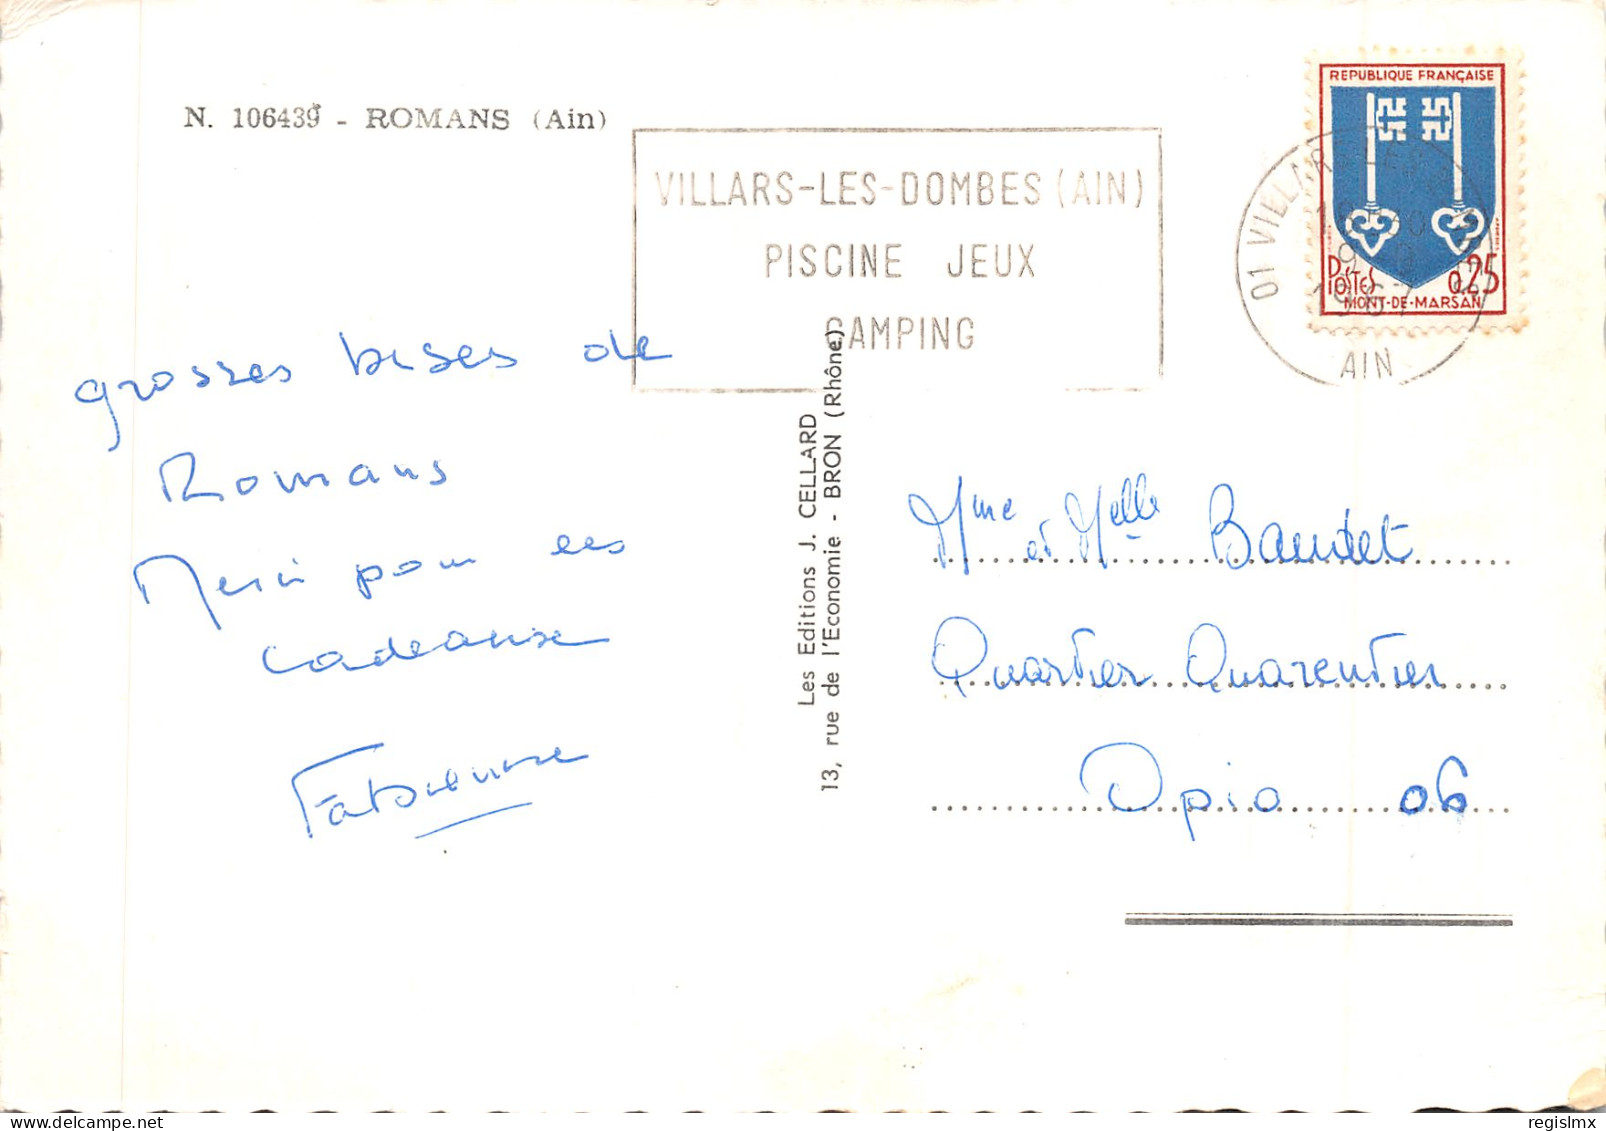 N. 106439 - ROMANS (Ain)
VILLARS-LES-DOMBES (AIN)
PISCINE JEUX
CAMPING
REPUBLIQUE FRANÇAISE
POSTES 0,25
MONT-DE-MARSAN
01 VILLARS-LES
1967
AIN
grosses bises de
Romans
Merci pour les
cadeaux
Fabienne
Les Editions J. CELLARD
13, rue de l'Economie - BRON (Rhône)
Mme et Melle Baudet
Quartier Quarentier
Opio 06
delcampe.net
regislmx